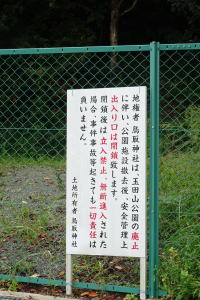 地権者 鳥取神社は、玉田山公園の廃止
に伴い、公園施設撤去後、安全管理上
出入り口は閉鎖致します。
閉鎖後は立入禁止。無断進入された
場合、事件事故等起きても一切責任は
負いません。
土地所有者 鳥取神社